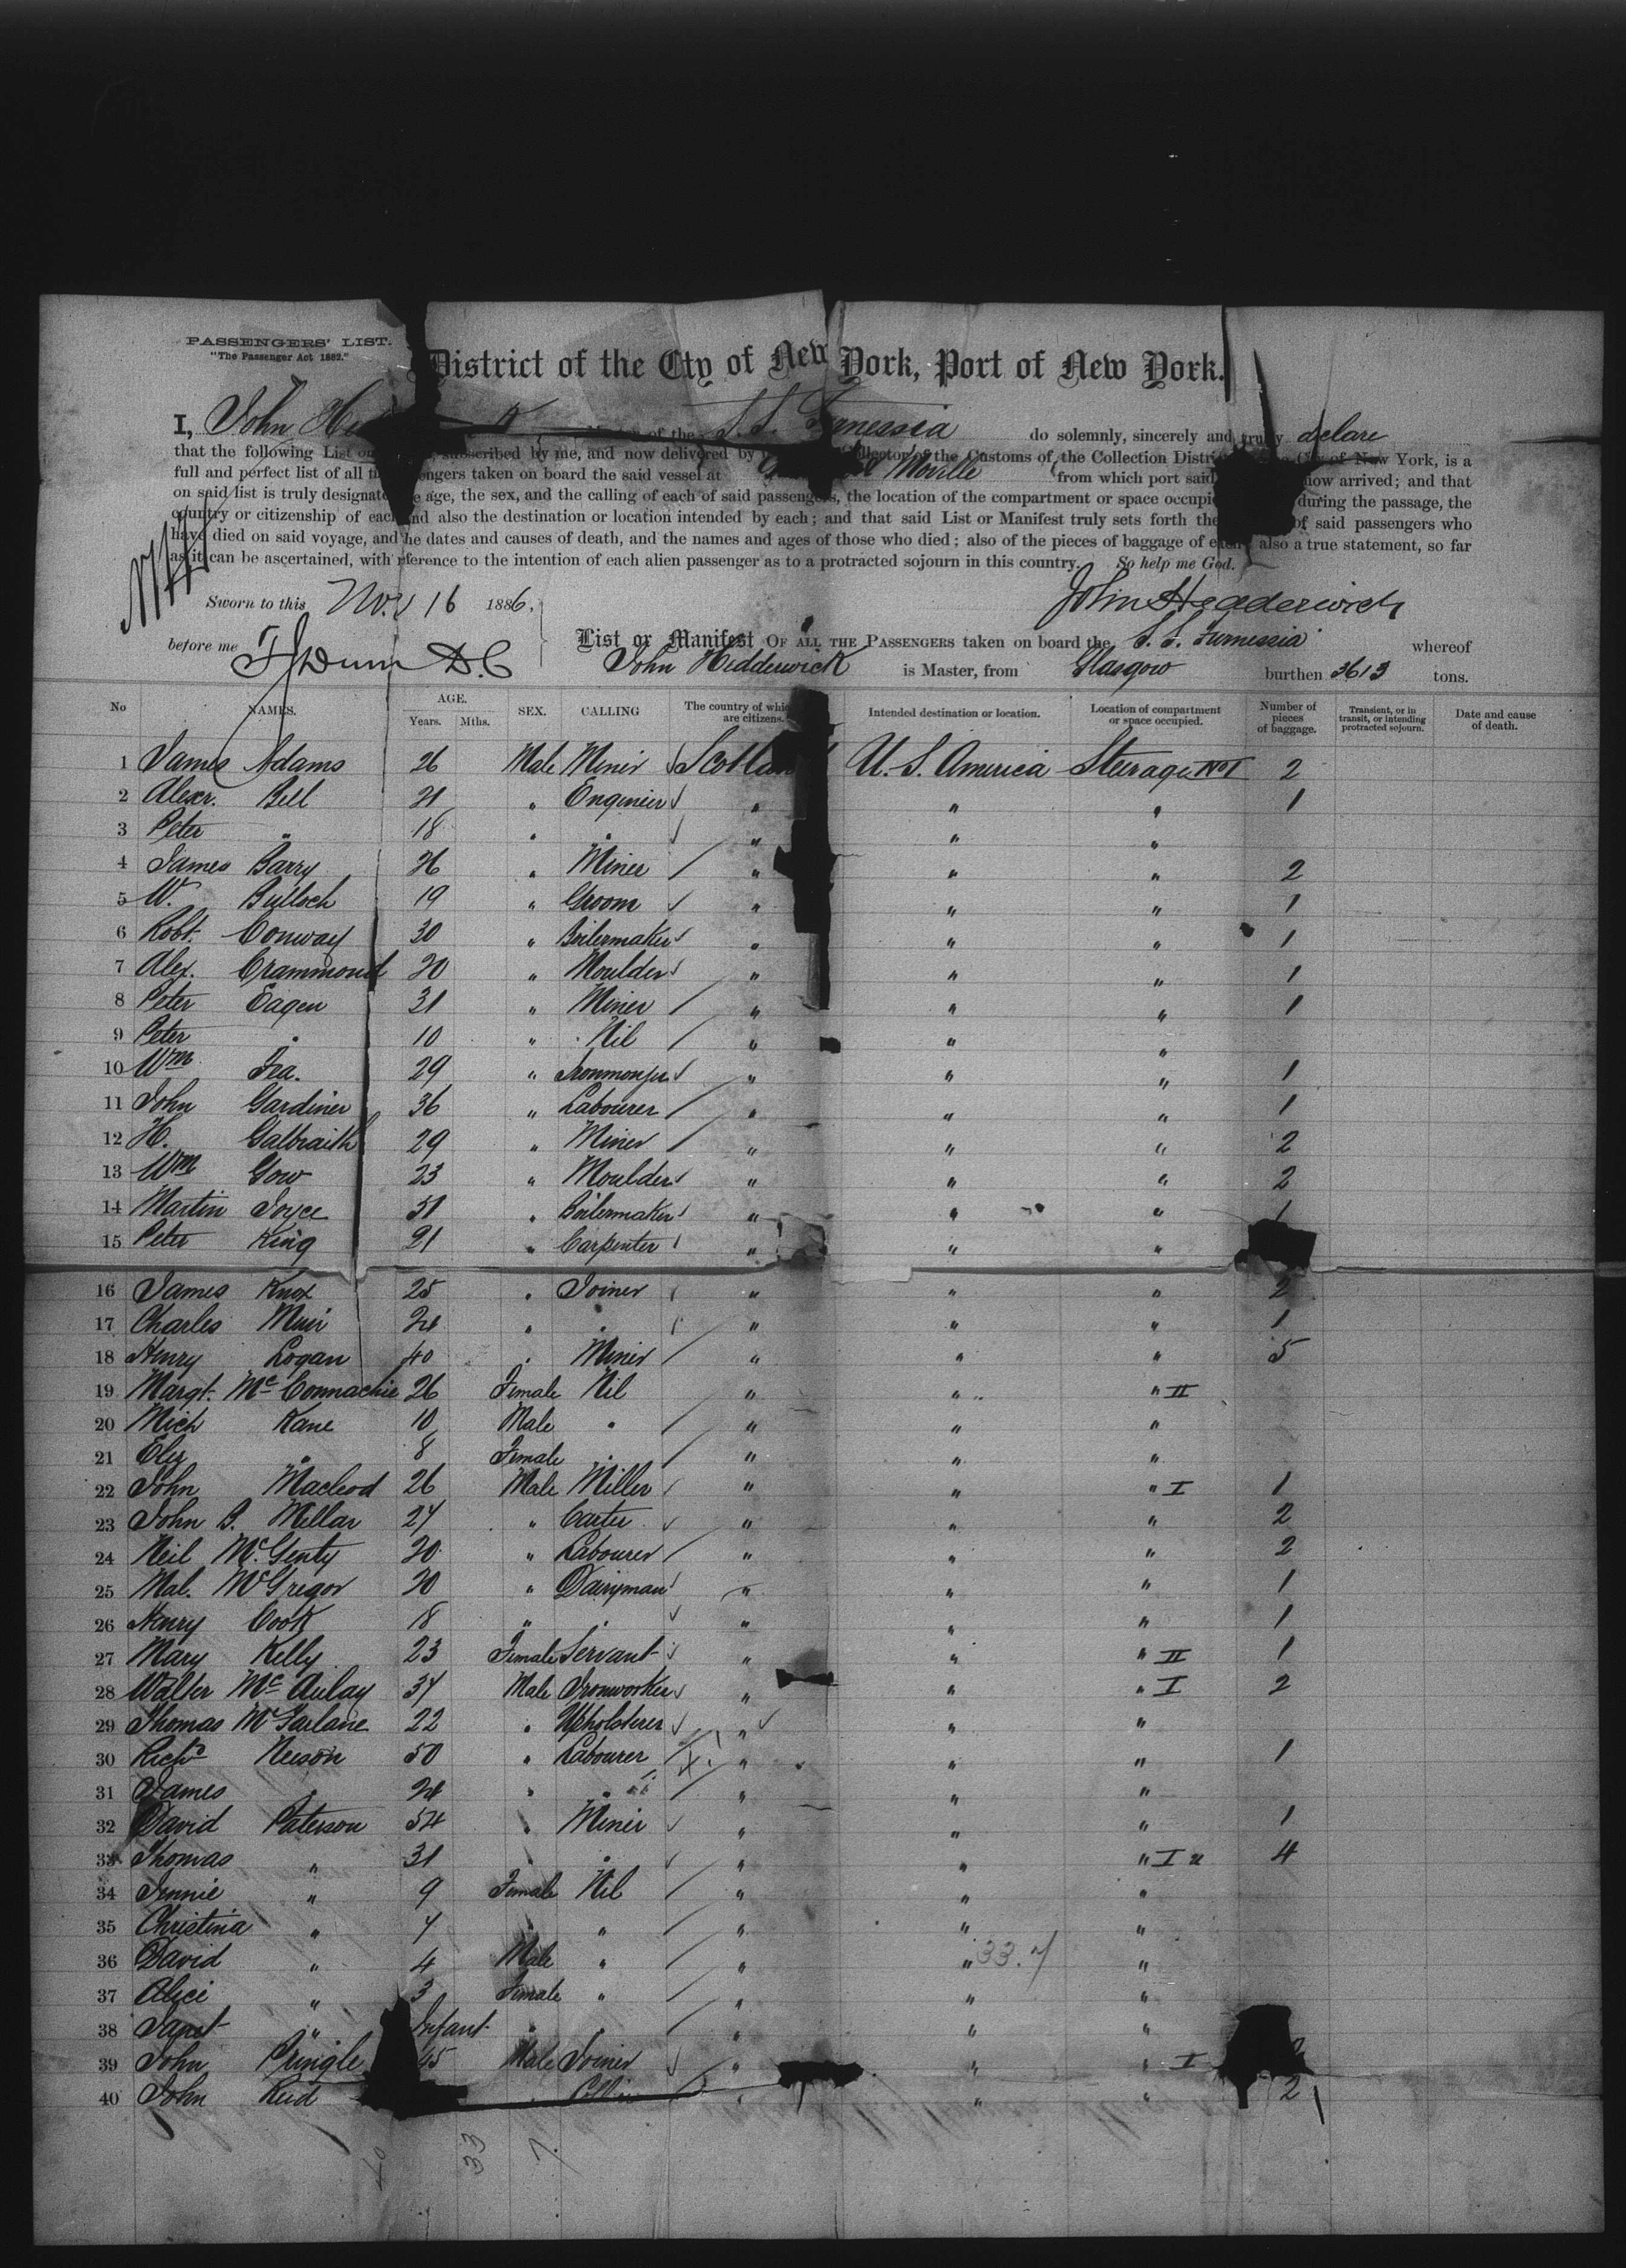 PASSENGERS' LIST.
"The Passenger Act 1882."
District of the City of New York, Port of New York.
I, John of the S. S. Furnessia do solemnly, sincerely and truly declare
that the following List subscribed by me, and now delivered by Collector of the Customs of the Collection District City of New York, is a
full and perfect list of all passengers taken on board the said vessel at Moville from which port said now arrived; and that
on said list is truly designated age, the sex, and the calling of each of said passengers, the location of the compartment or space occupied during the passage, the
country or citizenship of each and also the destination or location intended by each; and that said List or Manifest truly sets forth the of said passengers who
have died on said voyage, and he dates and causes of death, and the names and ages of those who died; also of the pieces of baggage of each also a true statement, so far
as it can be ascertained, with reference to the intention of each alien passenger as to a protracted sojourn in this country. So help me God.
Sworn to this Nov 16 1886, John Hedderwick
before me List or Manifest OF ALL THE PASSENGERS taken on board the S. S. Furnessia whereof
John Hedderwick is Master, from Glasgow burthen 3613 tons.
No NAMES. AGE. Years. Mths. SEX. CALLING The country of which are citizens. Intended destination or location. Location of compartment or space occupied. Number of pieces of baggage. Transient, or in transit, or intending protracted sojourn. Date and cause of death.
1 James Adams 26 Male Miner Scotland U. S. America Steerage No I 2
2 Alexr. Bell 21 " Engineer " " " 1
3 Peter " 18 " " " " "
4 James Barry 26 " Miner " " " 2
5 W. Bulloch 19 " Groom " " " 1
6 Robt. Conway 30 " Boilermaker " " " 1
7 Alex. Crammond 20 " Moulder " " " 1
8 Peter Eagen 31 " Miner " " " 1
9 Peter " 10 " Nil " " "
10 Wm Fea. 29 " Ironmonger " " " 1
11 John Gardiner 36 " Labourer " " " 1
12 H. Galbraith 29 " Miner " " " 2
13 Wm Gow 23 " Moulder " " " 2
14 Martin Joyce 51 " Boilermaker " " " 1
15 Peter King 21 " Carpenter " " "
16 James Knox 25 " Joiner " " " 2
17 Charles Muir 24 " " " " " 1
18 Henry Logan 40 " Miner " " " 5
19 Margt. McConnachie 26 Female Nil " " " II
20 Mich Kane 10 Male " " " "
21 Eliz " 8 Female " " " "
22 John Macleod 26 Male Miller " " " I 1
23 John B. Millar 24 " Carter " " " 2
24 Neil McGenty 20 " Labourer " " " 2
25 Mal. McGregor 20 " Dairyman " " " 1
26 Henry Cook 18 " " " " " 1
27 Mary Kelly 23 Female Servant " " " II 1
28 Walter McAulay 34 Male Ironworker " " " I 2
29 Thomas McFarlane 22 " Upholsterer " " "
30 Richd Neison 50 " Labourer " " " 1
31 James " 24 " " " " "
32 David Paterson 54 " Miner " " " 1
33 Thomas " 31 " " " " " I 4
34 Jennie " 9 Female Nil " " "
35 Christina " 7 " " " " "
36 David " 4 Male " " " 33.7 "
37 Alice " 3 Female " " " "
38 Janet " Infant " " " " "
39 John Pringle 45 Male Joiner " " " I
40 John Reid " " " " 2
40 33 7.